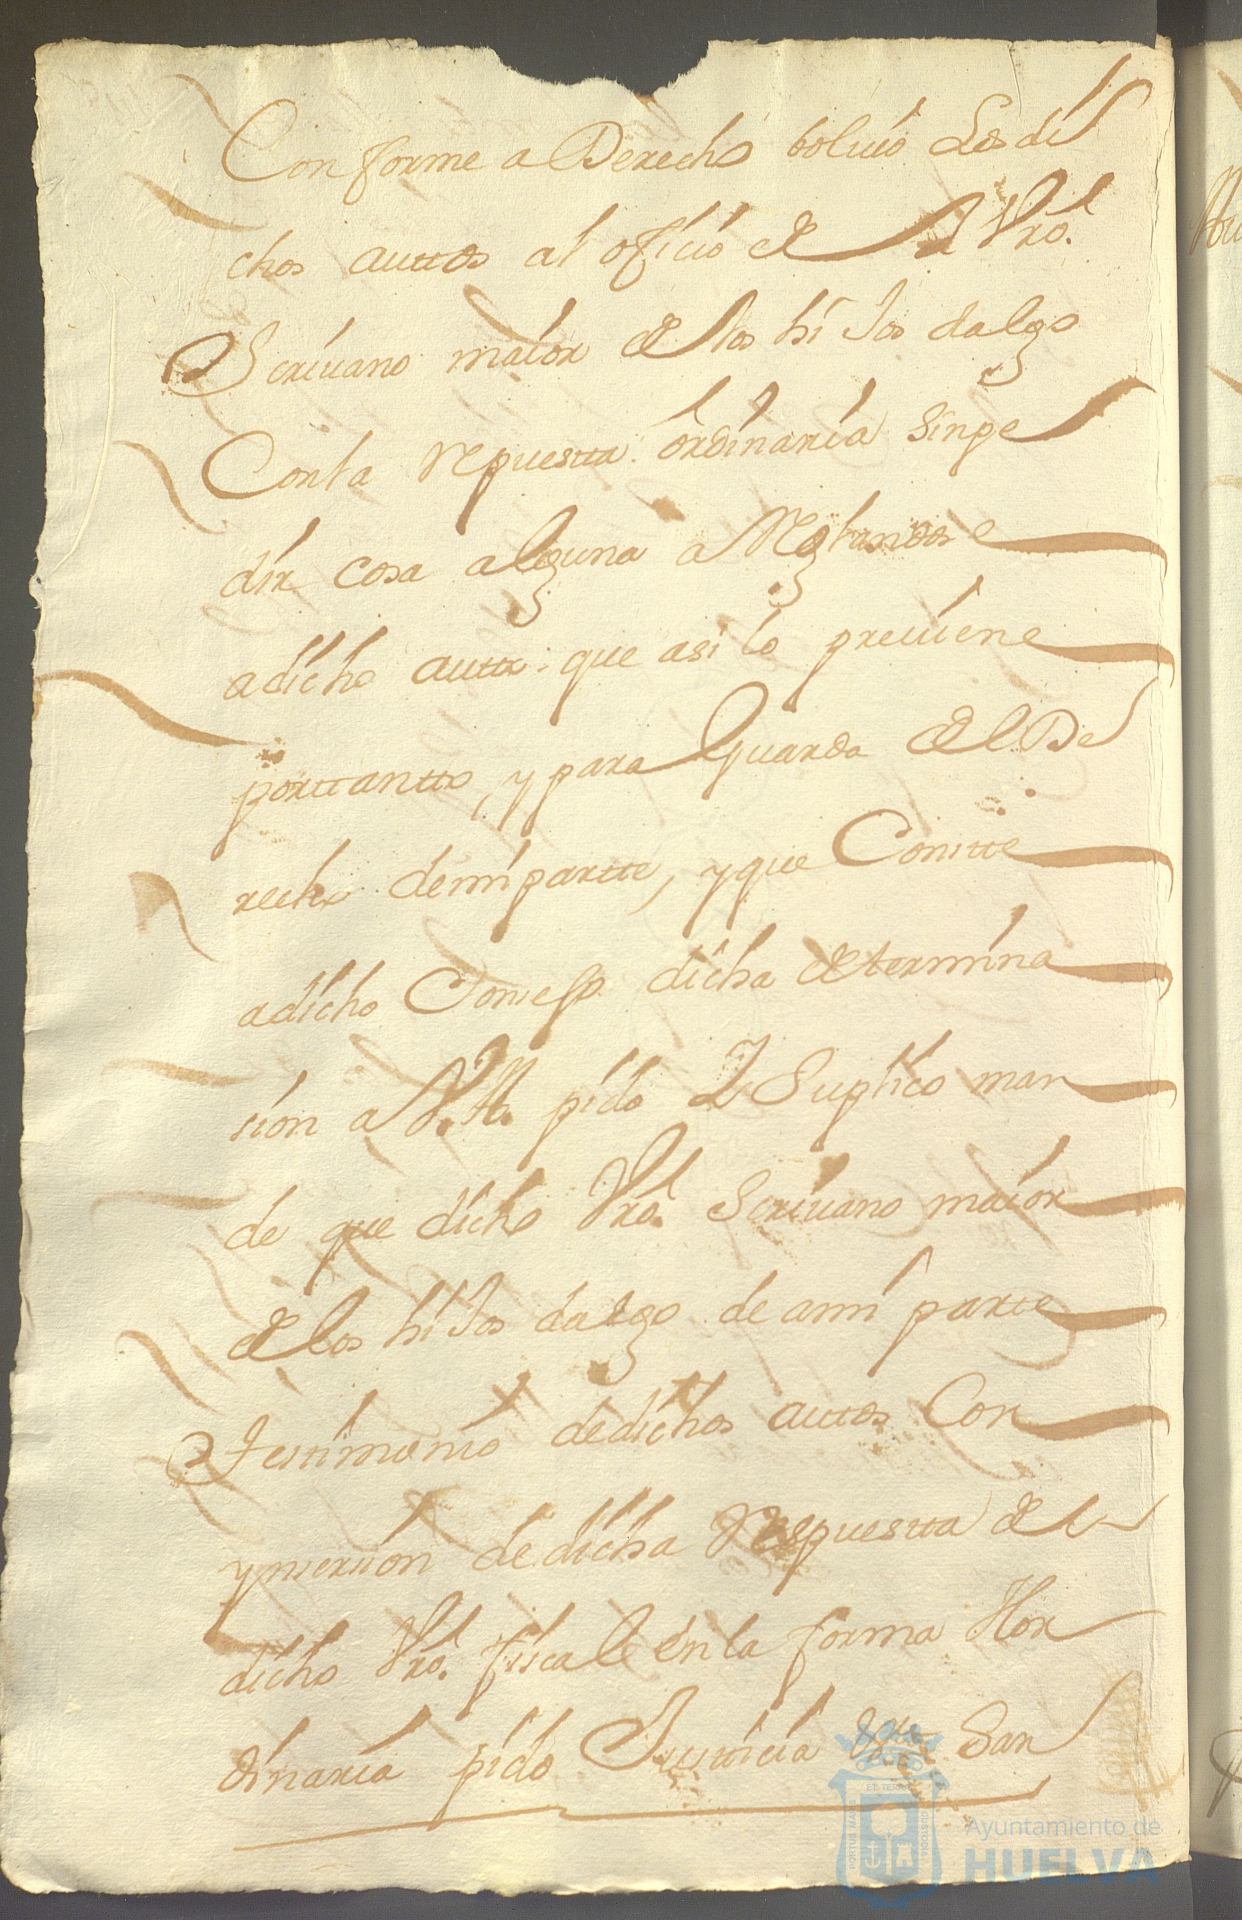 Conforme a Derecho boluio Los di
chos auttos al oficio de Vro.
Scriuano maior de los hiJos dalgo
Con la repuestta ordinaria sin pe
dir cosa alguna a
a dicho autto que asi lo preuiene
porttantto, y para Guarda del De
recho de mi partte, y que Constte
a dicho Consejo dicha determina
sion a V.A. pido Y Suplico man
de que dicho Vro. Scriuano maior
de los hiJos dalgo de a mi partte
testimonio de dichos auttos Con
ynsersion de dicha respuestta del
dicho Vro. fiscal en la forma Hor
dinaria pido Justticia San
Ayuntamiento de
HUELVA